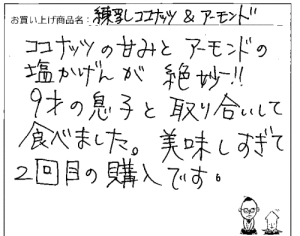 お買い上げ商品名：練乳ココナッツ&アーモンド
ココナッツの甘みとアーモンドの
塩かげんが絶妙!!
9才の息子と取り合いして
食べました。美味しすぎて
2回目の購入です。